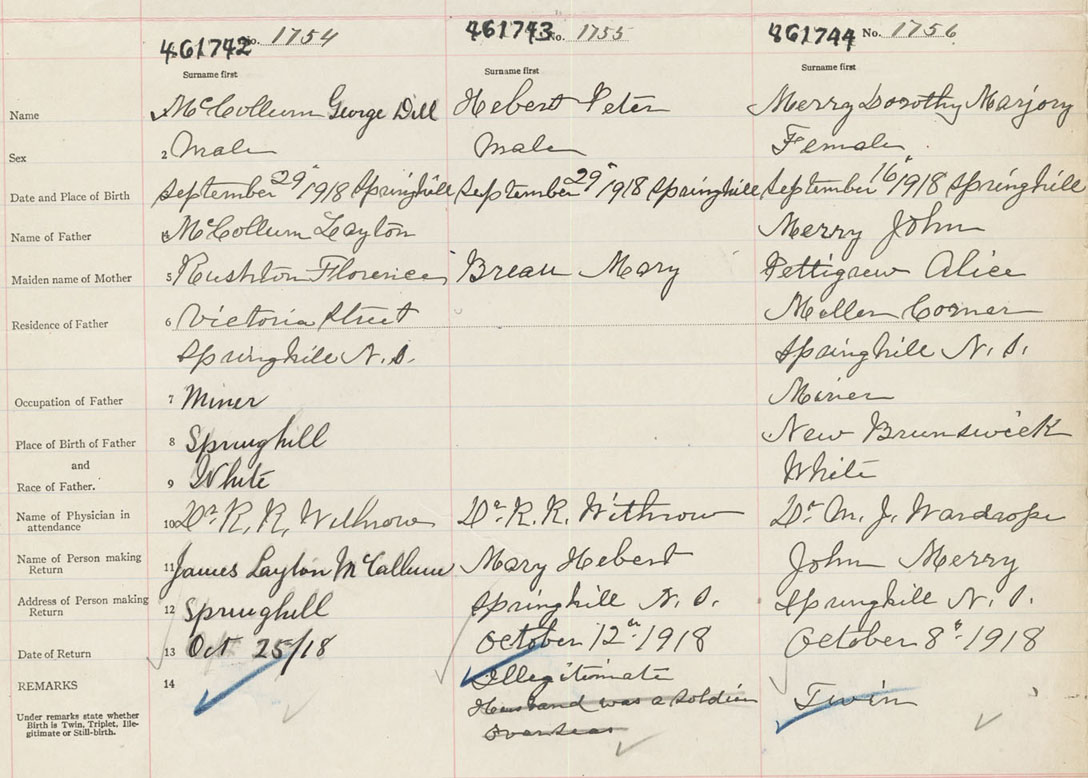 461742 No. 1754 461743 No. 1755 461744 No. 1756
Surname first Surname first Surname first
Name McCollum George Dill Hebert Peter Merry Dorothy Marjory
Sex 2 Male Male Female
Date and Place of Birth September 29" 1918 Springhill September 29" 1918 Springhill September 16" 1918 Springhill
Name of Father 4 McCollum Layton Merry John
Maiden name of Mother 5 Rushton Florence Breau Mary Pettigrew Alice
Residence of Father 6 Victoria Street Corner
Springhill N.S. Springhill N.S.
Occupation of Father 7 Miner Miner
Place of Birth of Father 8 Springhill New Brunswick
and
Race of Father. 9 White White
Name of Physician in attendance 10 Dr. R. R. Withrow Dr. R. R. Withrow Dr. M. J. Wardrope
Name of Person making Return 11 James Layton McCallum Mary Hebert John Merry
Address of Person making Return 12 Springhill Springhill N.S. Springhill N.S.
Date of Return 13 Oct 25/18 October 12th 1918 October 8th 1918
REMARKS 14 Illegitimate Twin
Under remarks state whether Husband was a soldier
Birth is Twin, Triplet, Ille- overseas
gitimate or Still-birth.